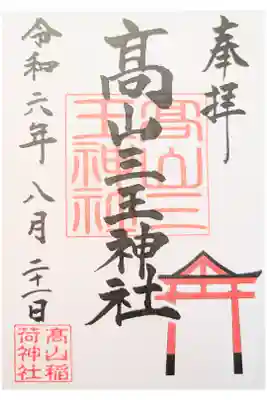 奉拝
髙山三王神社
髙山三王神社
令和六年八月二十一日
髙山稲荷神社